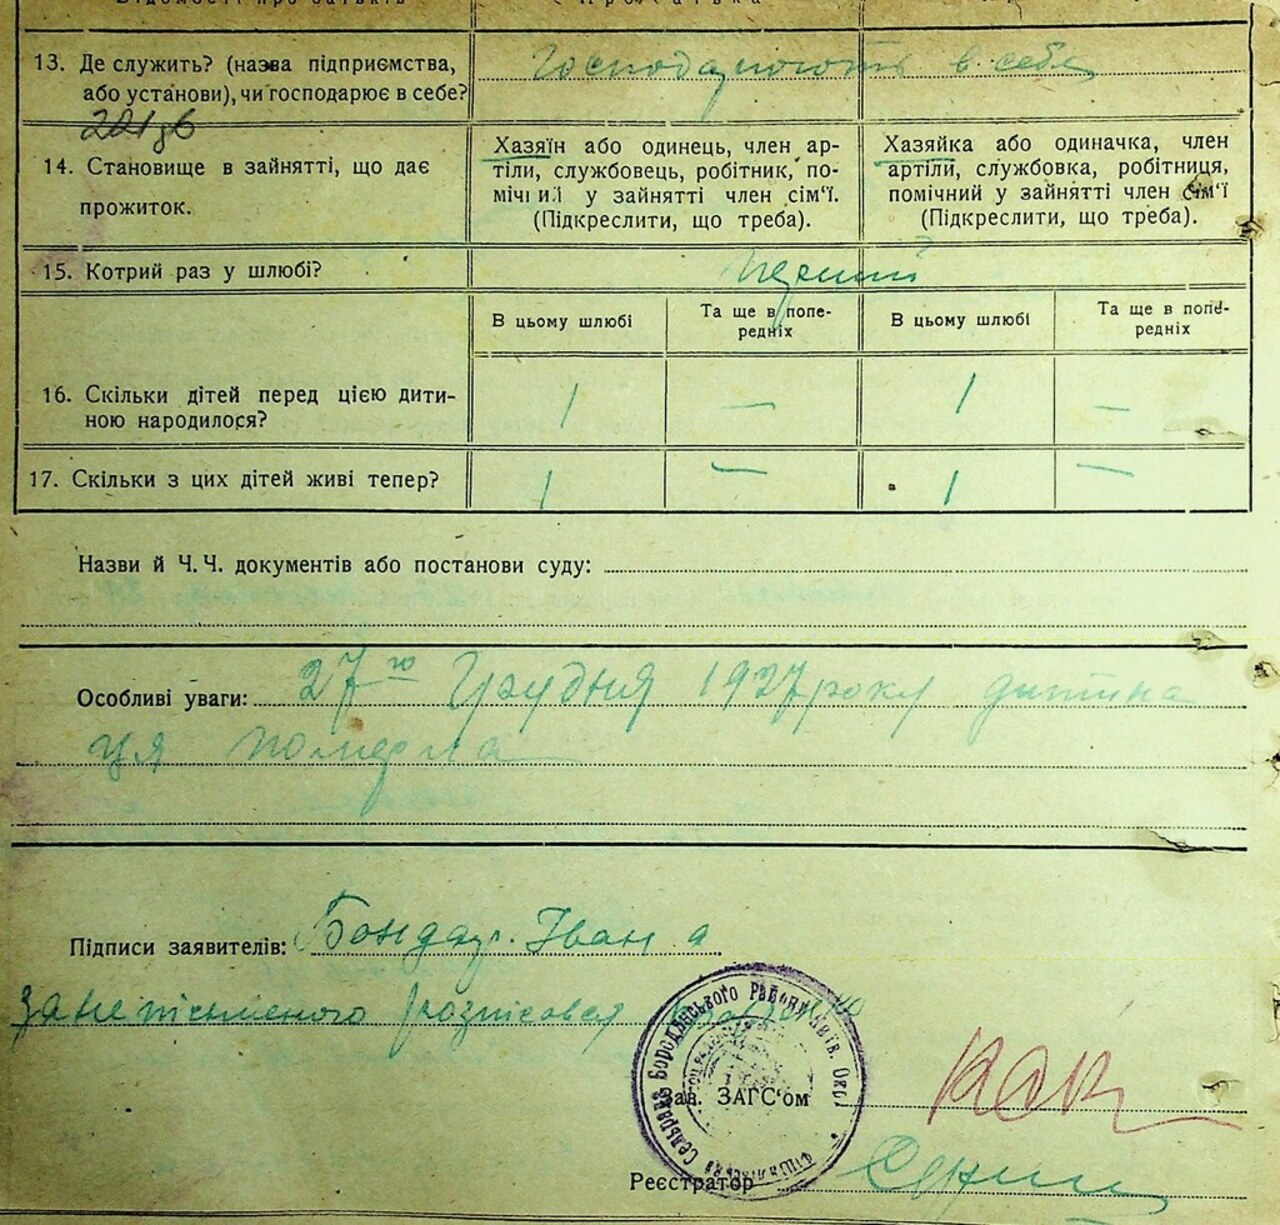 Відомості про батьків Про батька
13. Де служить? (назва підприємства, або установи), чи господарює в себе? Господарюють в себе
14. Становище в зайнятті, що дає прожиток.
Хазяїн або одинець, член артіли, службовець, робітник, помічний у зайнятті член сім'ї. (Підкреслити, що треба).
Хазяйка або одиначка, член артіли, службовка, робітниця, помічний у зайнятті член сім'ї (Підкреслити, що треба).
15. Котрий раз у шлюбі? Перший
В цьому шлюбі Та ще в попередніх В цьому шлюбі Та ще в попередніх
16. Скільки дітей перед цією дитиною народилося? 1 — 1 —
17. Скільки з цих дітей живі тепер? 1 — 1 —
Назви й Ч. Ч. документів або постанови суду:
Особливі уваги: 27го Грудня 1927 року дитина
ця померла
Підписи заявителів: Бондар Іван а
за неписьменого розписовся
Сельрада Бородянського Району Київ. Окр.
Зав. ЗАГС'ом
Реєстратор